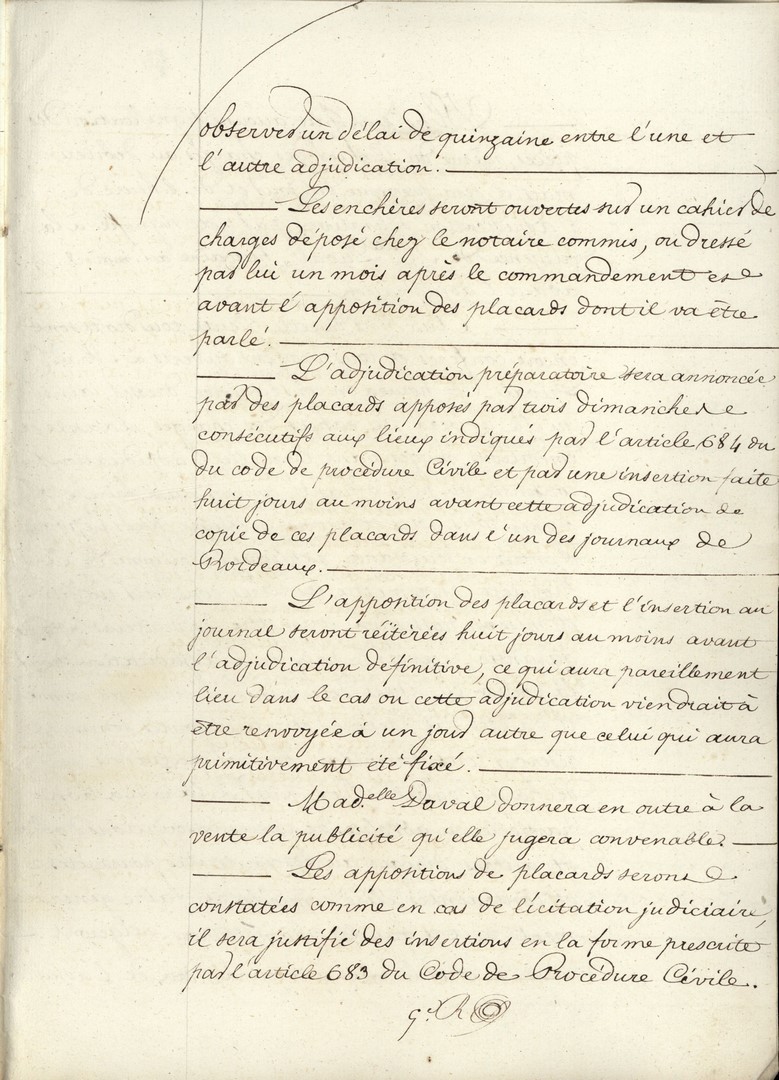 observer un délai de quinzaine entre l'une et
l'autre adjudication.
Les enchères seront ouvertes sur un cahier de
charges déposé chez le notaire commis, ou dressé
par lui un mois après le commandement et
avant l'apposition des placards dont il va être
parlé.
L'adjudication préparatoire sera annoncée
par des placards apposés par trois dimanches
consécutifs aux lieux indiqués par l'article 684 du
du code de procédure Civile et par une insertion faite
huit jours au moins avant cette adjudication de
copie de ces placards dans l'un des journaux de
Bordeaux.
L'apposition des placards et l'insertion au
journal seront réïtérées huit jours au moins avant
l'adjudication définitive, ce qui aura pareillement
lieu dans le cas ou cette adjudication viendrait à
être renvoyée à un jour autre que celui qui aura
primitivement été fixé.
Mad.elle Daval donnera en outre à la
vente la publicité qu'elle jugera convenable.
Les appositions de placards seront
constatées comme en cas de licitation judiciaire,
il sera justifié des insertions en la forme prescrite
par l'article 683 du Code de Procédure Civile.